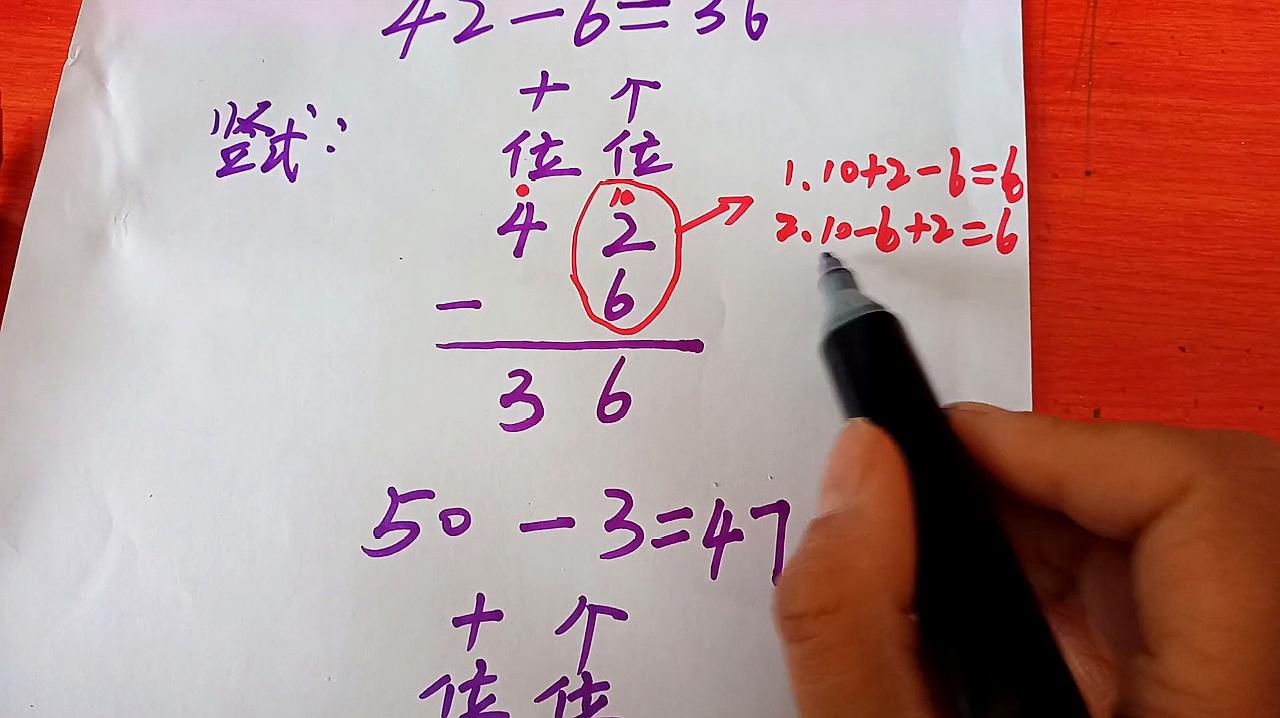 42-6=36
竖式:
十 个
位 位
10
4 2
- 6
3 6
1.10+2-6=6
2.10-6+2=6
50-3=47
十 个
位 位